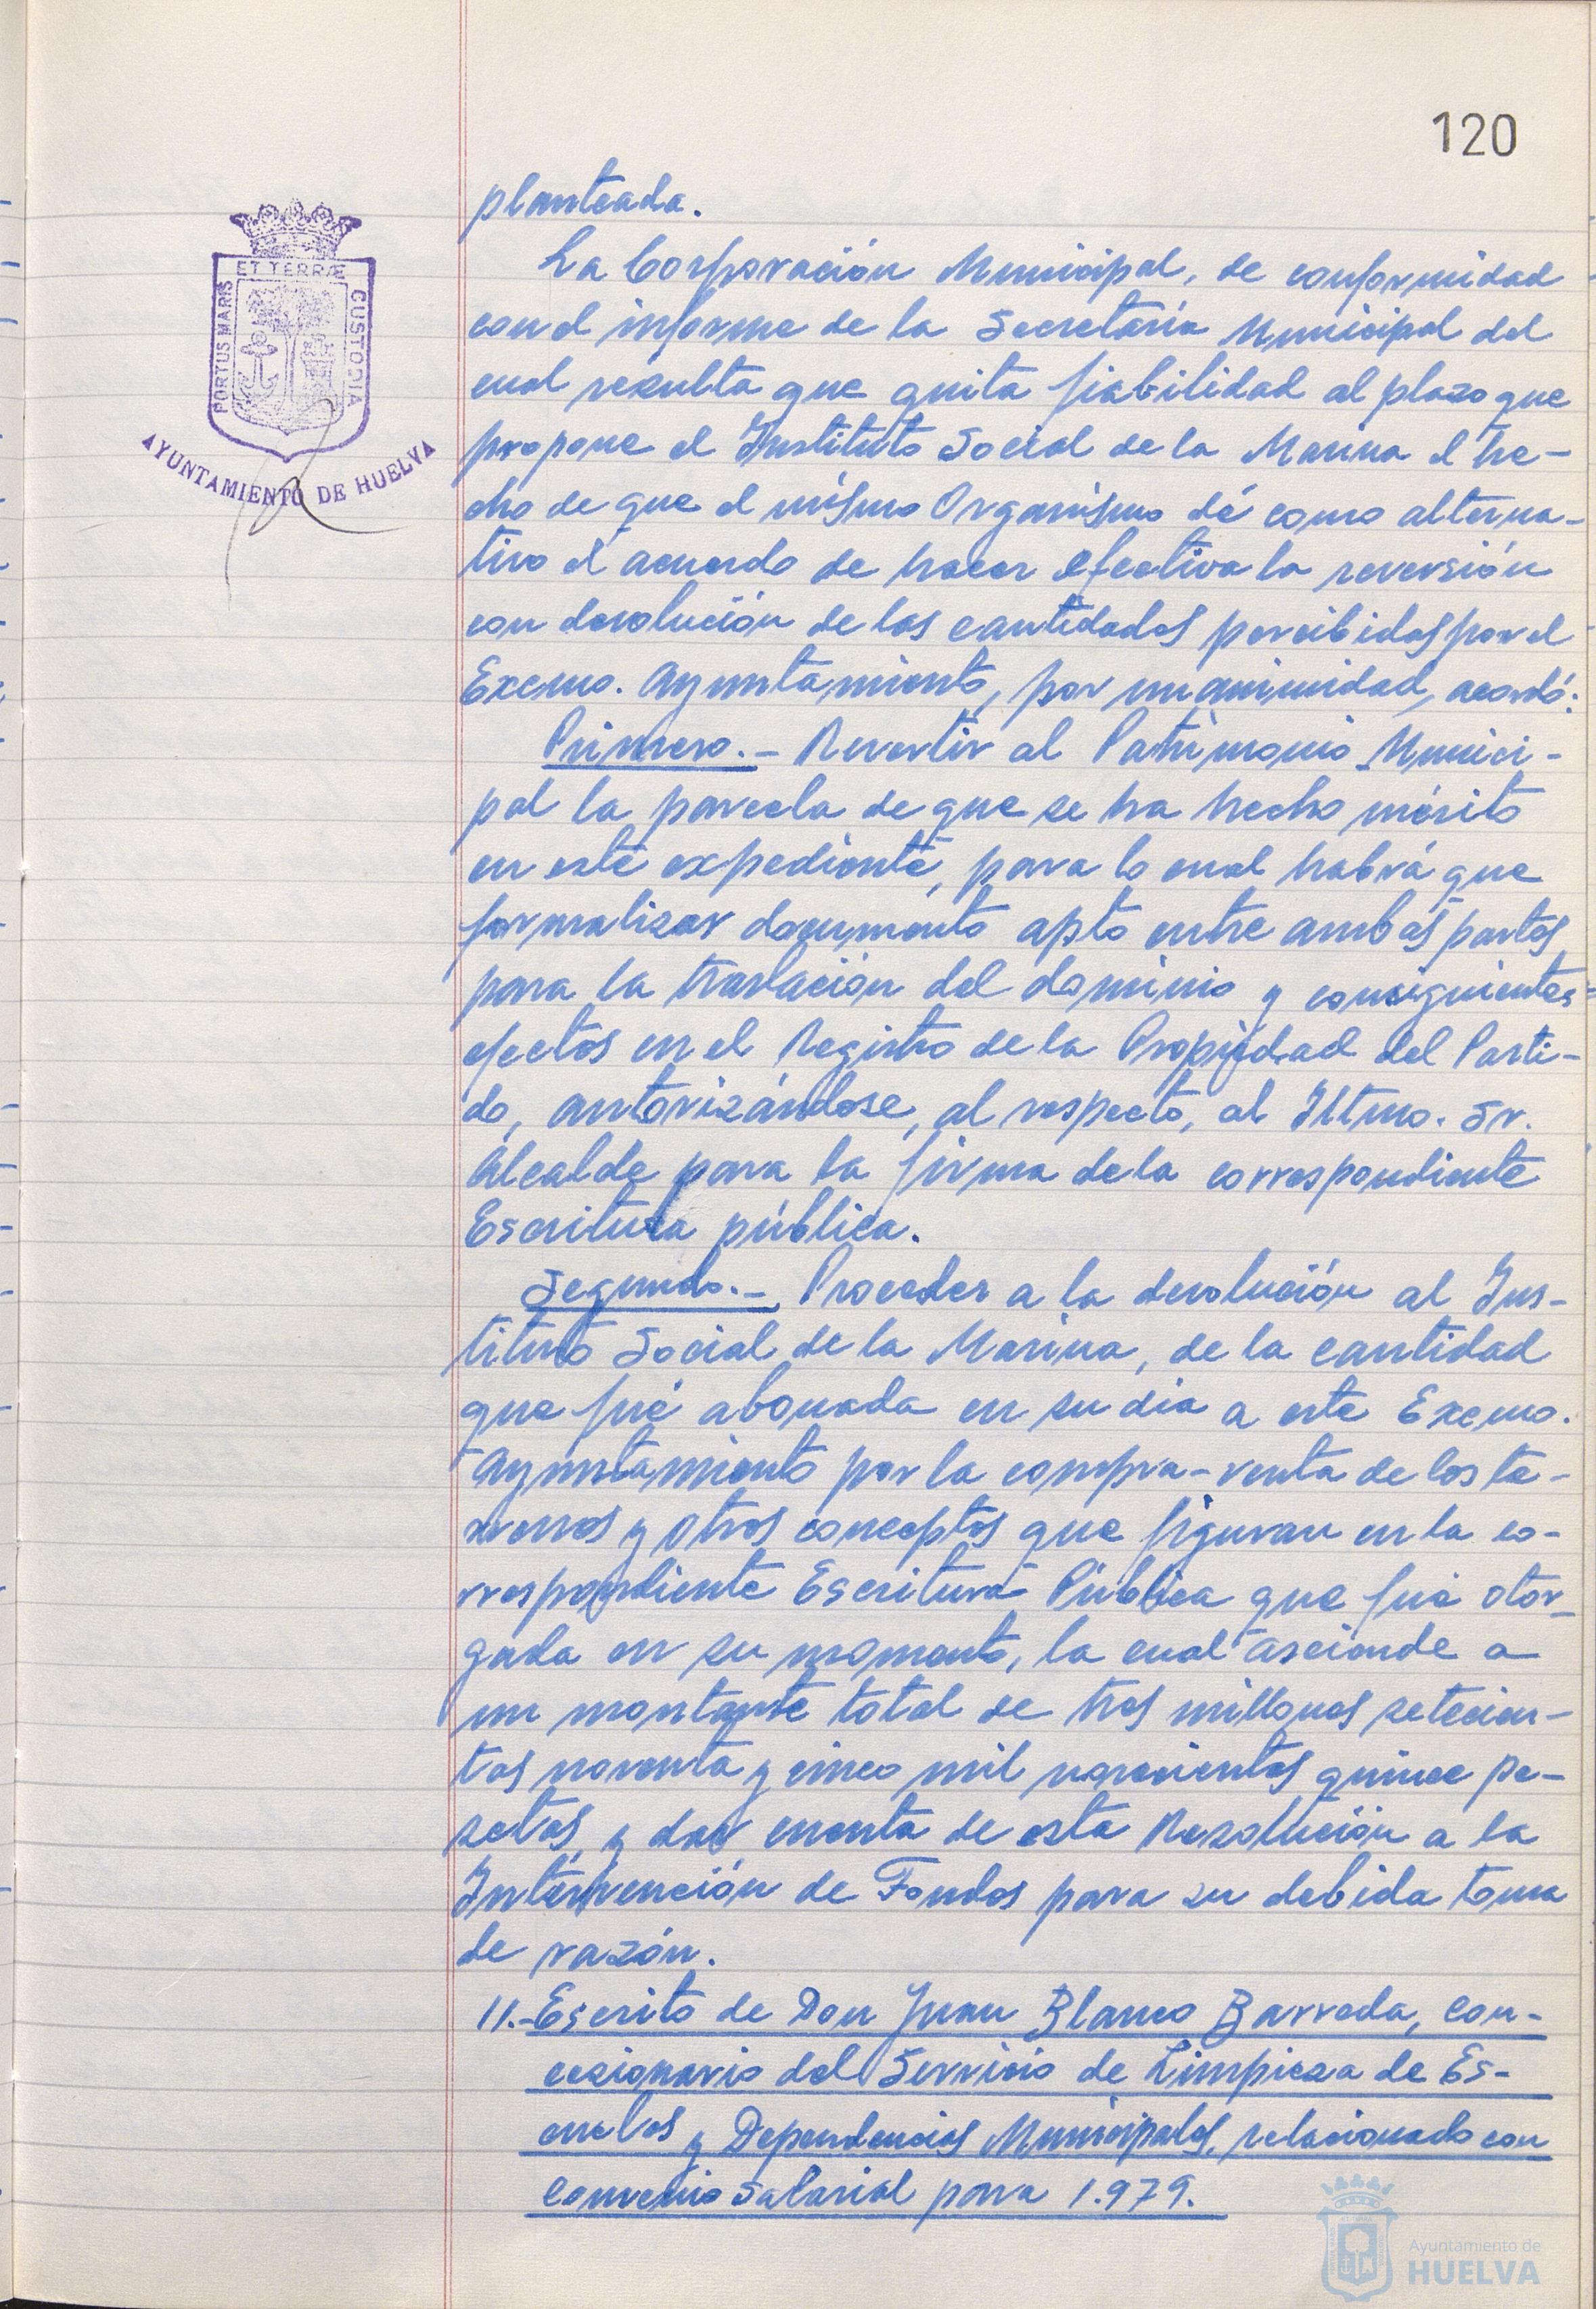 120
planteada.
La Corporación Municipal, de conformidad
con el informe de la Secretaría Municipal del
cual resulta que quita fiabilidad al plazo que
propone el Instituto Social de la Marina el he-
cho de que el mismo Organismo dé como alterna-
tivo el acuerdo de hacer efectiva la reversión
con devolución de las cantidades percibidas por el
Excmo. Ayuntamiento, por unanimidad, acordó:
Primero.- Revertir al Patrimonio Munici-
pal la parcela de que se ha hecho mérito
en este expediente, para lo cual habrá que
formalizar documento apto entre ambas partes
para la traslación del dominio y consiguientes
efectos en el Registro de la Propiedad del Parti-
do, autorizándose, al respecto, al Iltmo. Sr.
Alcalde para la firma de la correspondiente
Escritura pública.
Segundo.- Proceder a la devolución al Ins-
tituto Social de la Marina, de la cantidad
que fué abonada en su día a este Excmo.
Ayuntamiento por la compra-venta de los te-
rrenos y otros conceptos que figuran en la co-
rrespondiente Escritura Pública que fué otor-
gada en su momento, la cual asciende a
un montante total de tres millones setecien-
tas noventa y cinco mil novecientas quince pe-
setas, y dar cuenta de esta Resolución a la
Intervención de Fondos para su debida toma
de razón.
11.- Escrito de Don Juan Blanco Barroda, con-
cesionario del Servicio de Limpieza de Es-
cuelas y Dependencias Municipales, relacionado con
Convenio Salarial para 1.979.
PORTUS MARIS ET TERRÆ CUSTODIA
AYUNTAMIENTO DE HUELVA
Ayuntamiento de
HUELVA